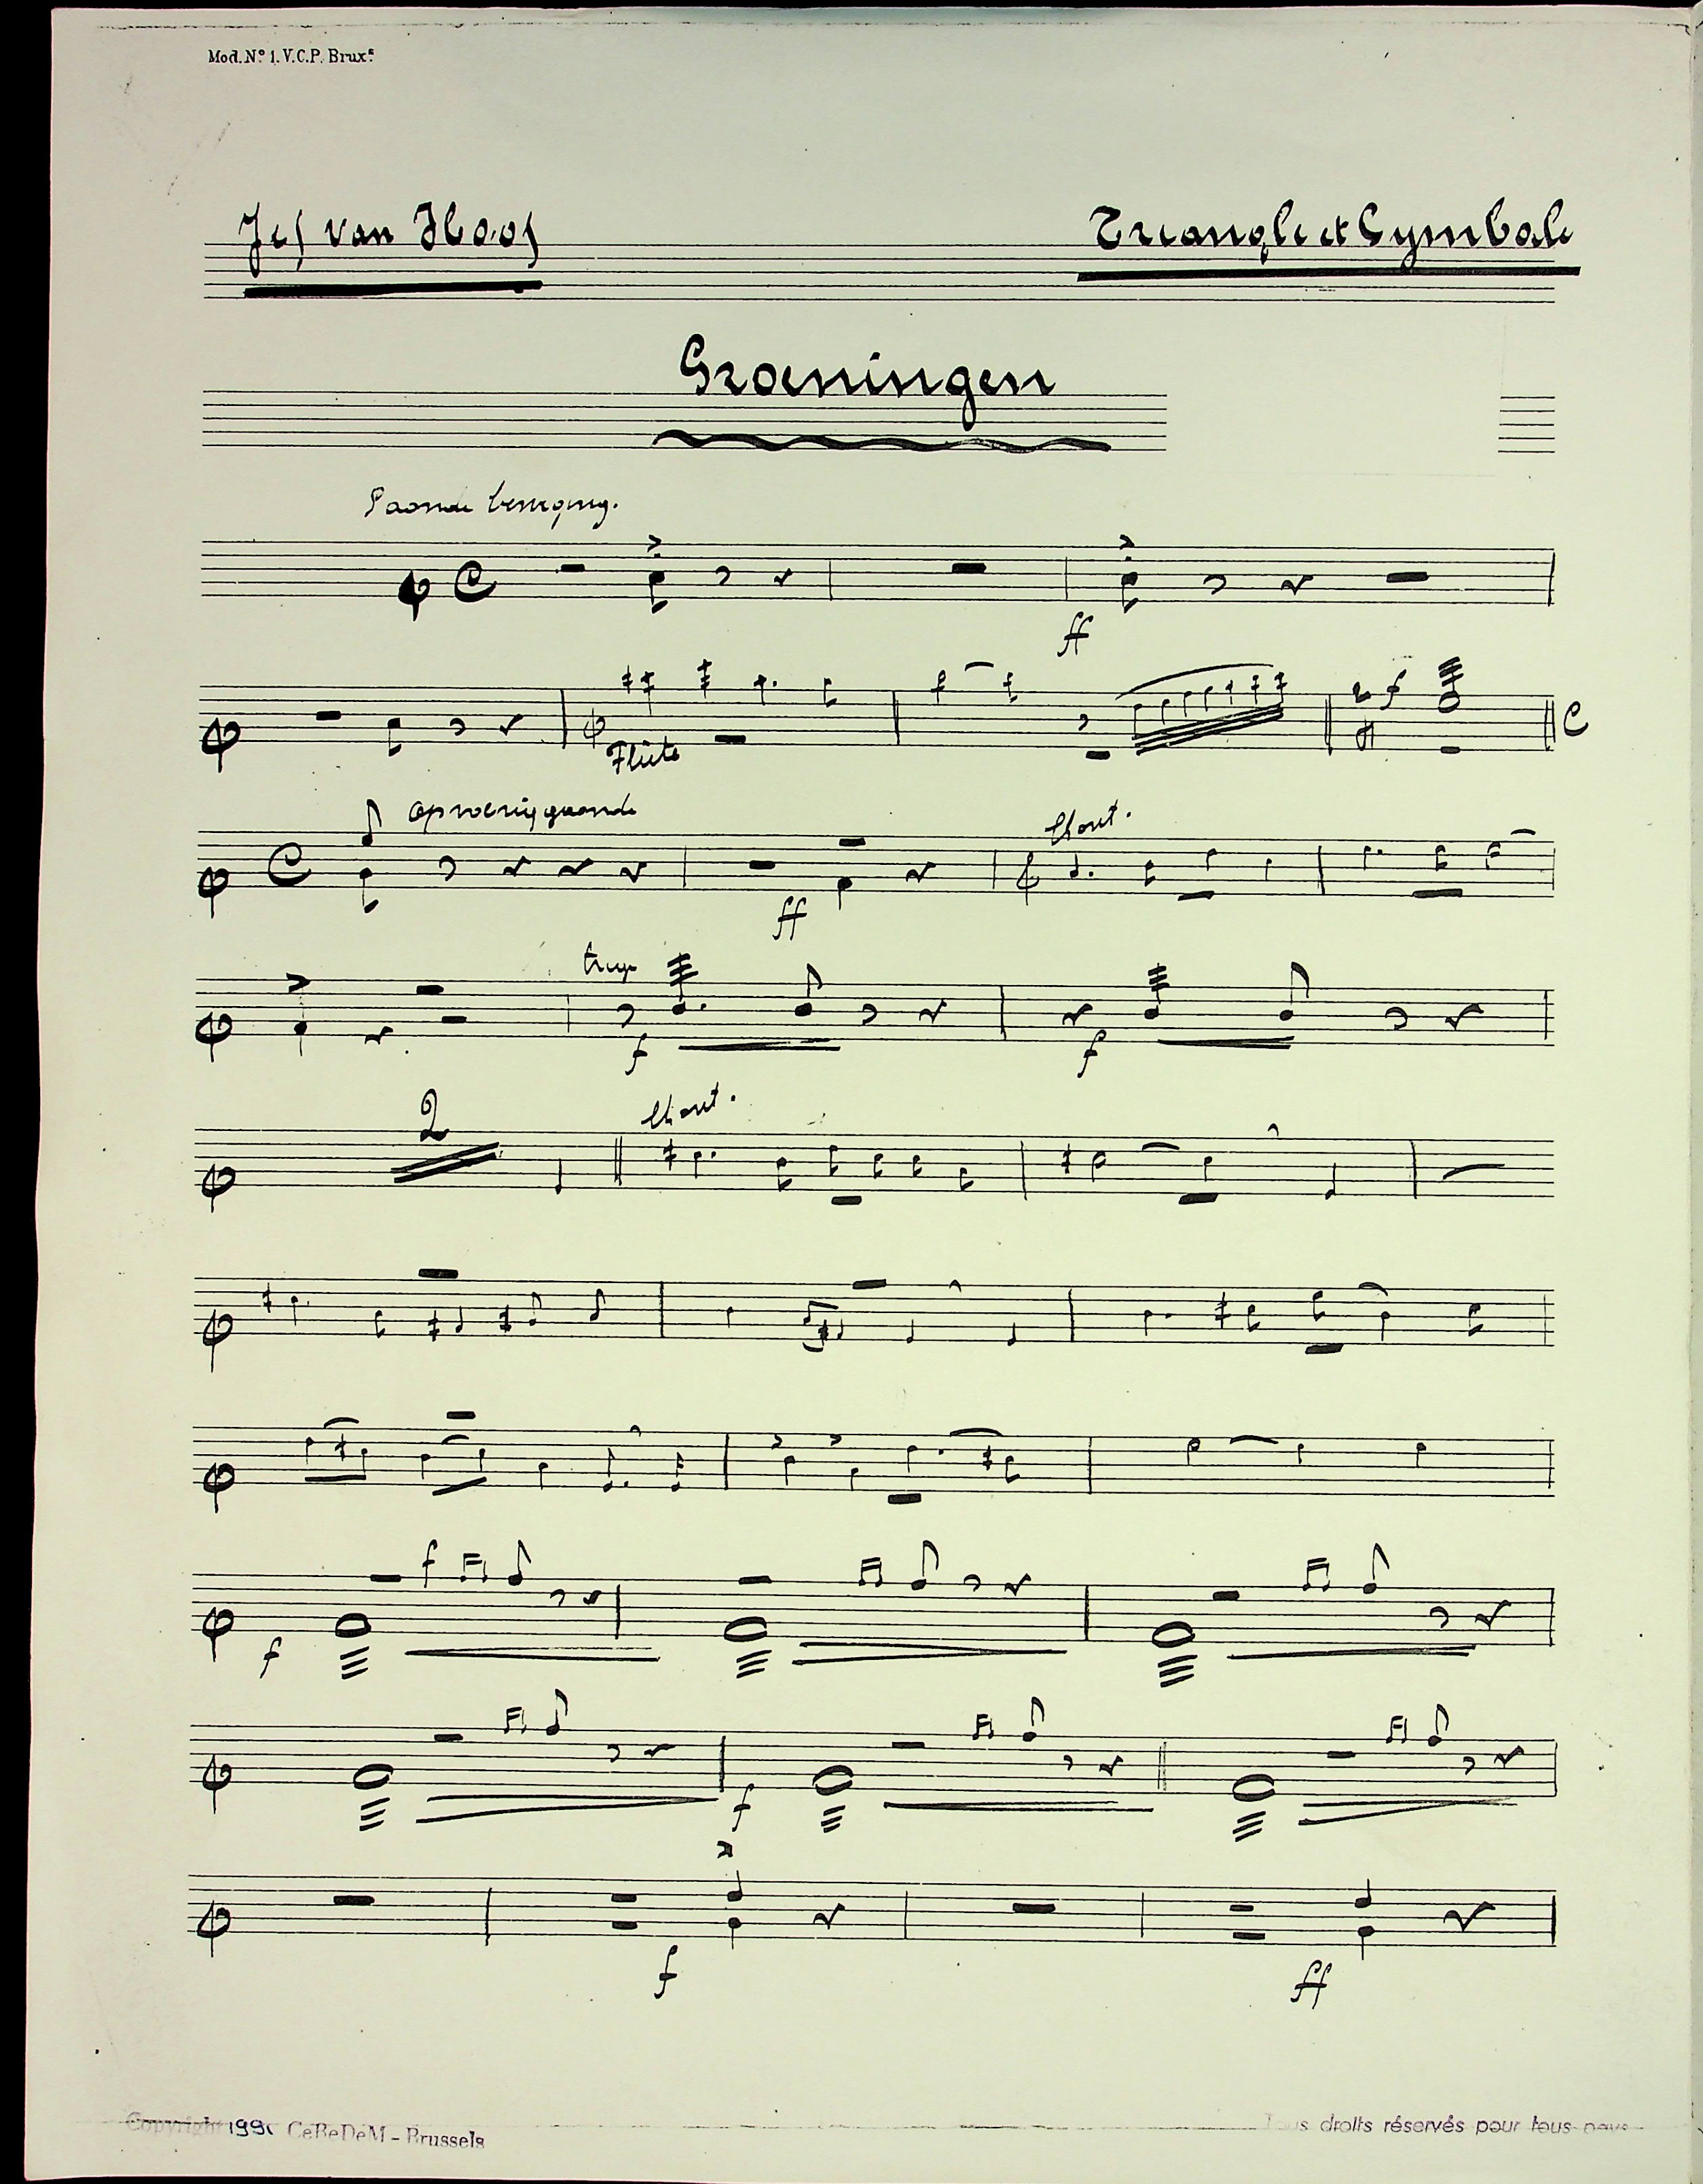 Mod. Nº 1. V.C.P. Brux.
Jef van Hoof
Triangle et Cymbale
Groeningen
Gaande beweging.
ff
Flûte
f
opwekkig gaande
Chant.
ff
f
f
2
Chant.
f
f
f
f
ff
Copyright 1991 CeBeDeM - Brussels
Tous droits réservés pour tous pays